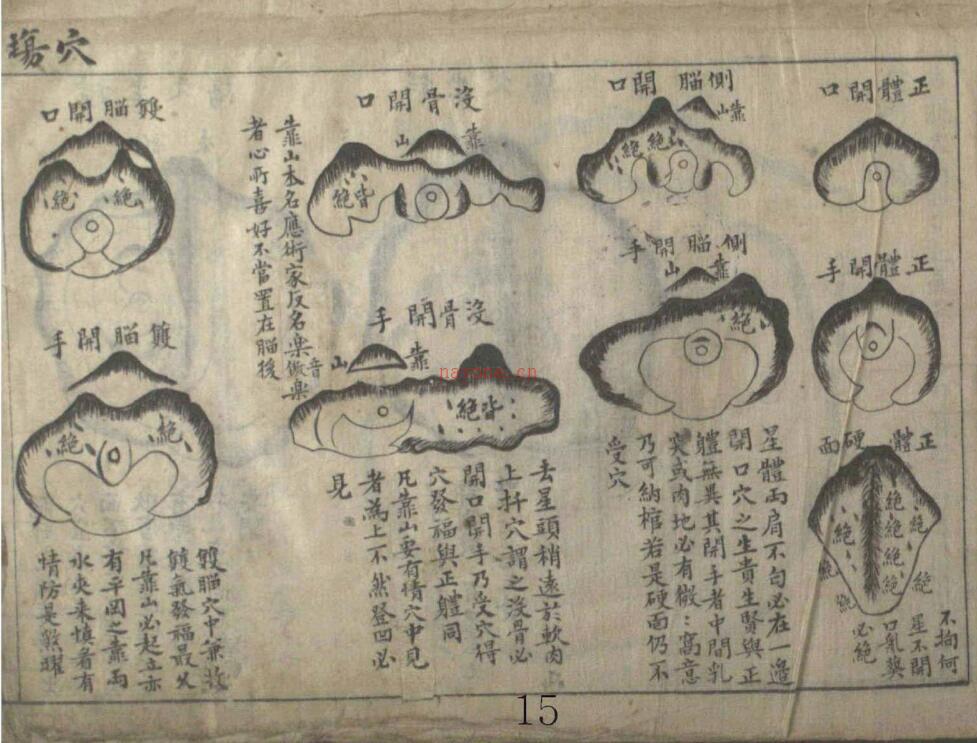 穴塲
正體開口
正體開手
正體硬面
絕
絕
絕
絕
絕
絕
絕
絕
絕
不拘何
星不開
口乳葬
必絕
側腦開口
靠山
絕
絕
側腦開手
靠山
絕
星體兩肩不勻必在一邉
開口穴之生貴生賢與正
體無異其開手者中間乳
突或肉地必有微：窩意
乃可納棺若是硬面仍不
受穴
没骨開口
靠山
皆絕
没骨開手
靠山
皆絕
去星頭稍遠於軟肉
上扦穴謂之没骨必
開口開手乃受穴得
穴發福與正體同
凡靠山要有情穴中見
者為上不然登凹必
見
靠山本名應術家反名樂儆樂
音
者心所喜好不當置在腦後
雙腦開口
絕
絕
雙腦開手
絕
絕
雙腦穴中兼故
雙氣發福最火
凡靠山必起立亦
有平岡之靠兩
水夾来慎者有
情防是煞曜
narone.cn
15